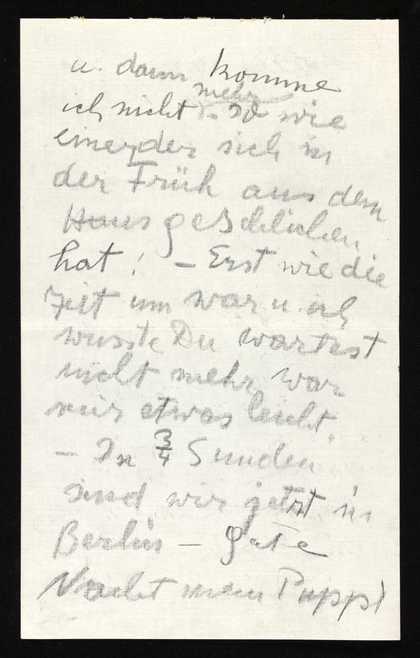 u. dann komme
mehr
ich nicht so wie
einer der sich in
der Früh aus dem
Haus geschlichen
hat! – Erst wie die
Zeit um war u. ich
wusste Du wartest
nicht mehr war
mir etwas leicht.
– In ¾ Sunden
sind wir jetzt in
Berlin – gute
Nacht mein Puppi